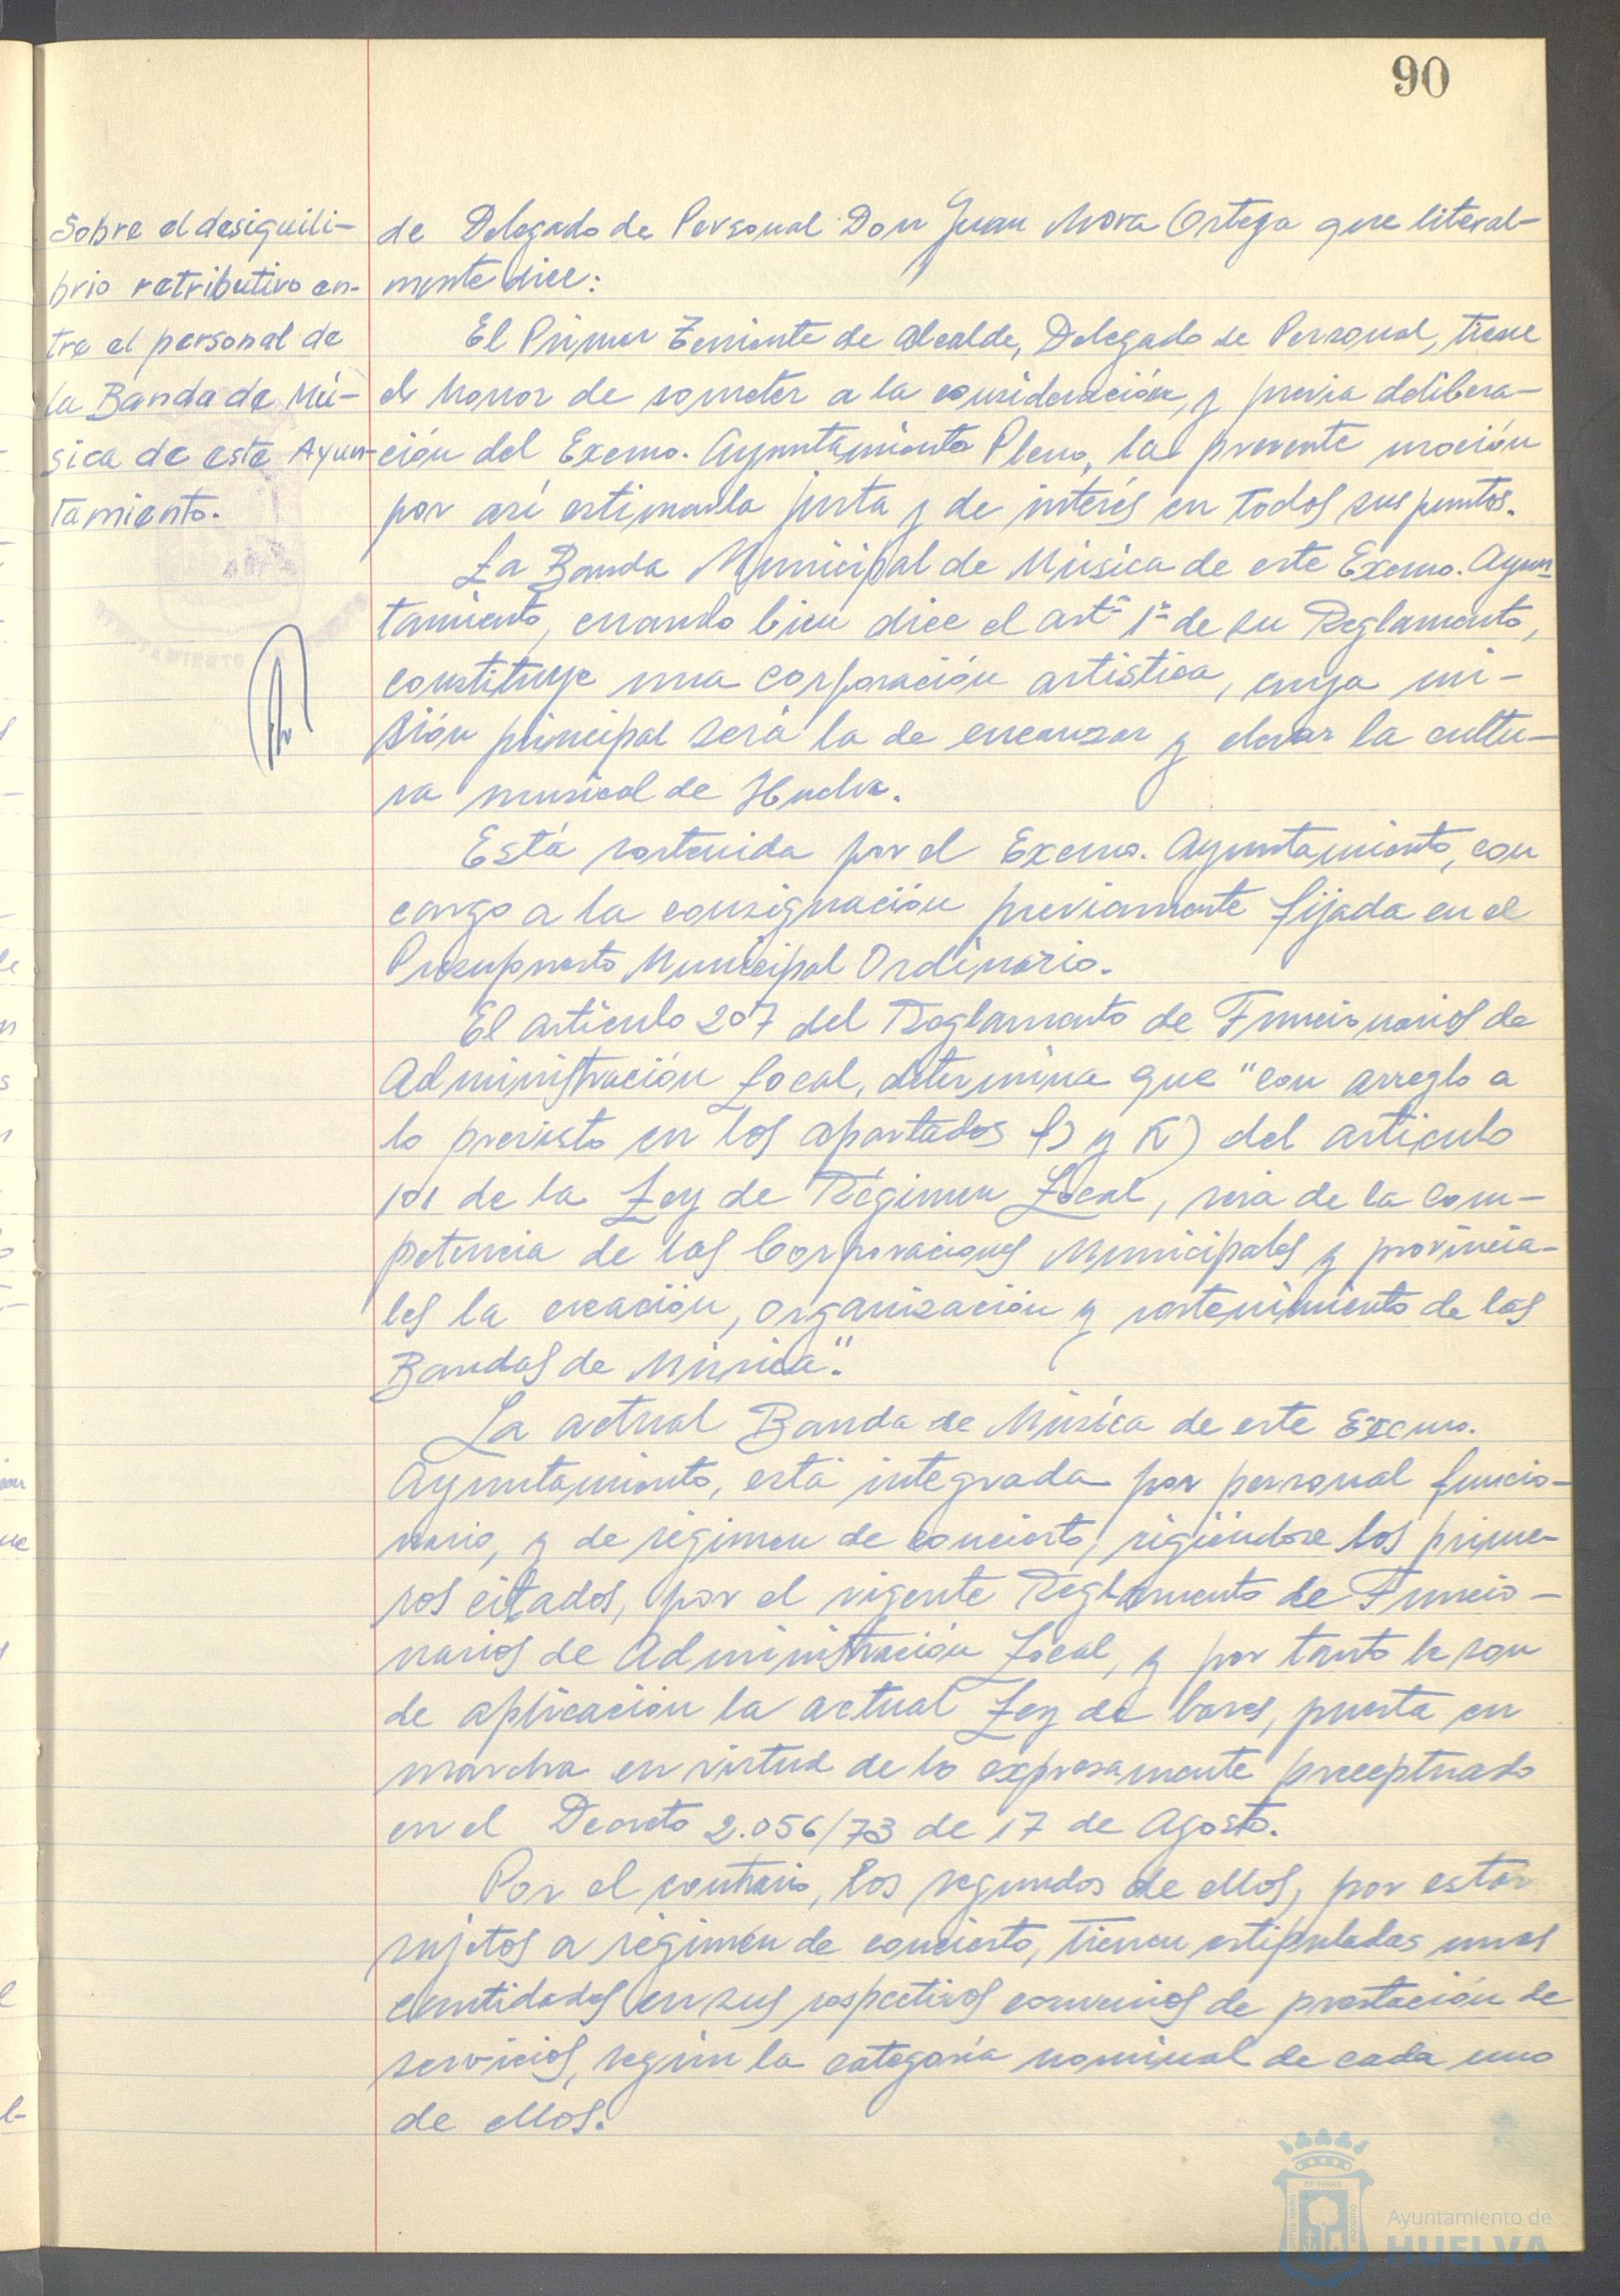 90
Sobre el desiquili-
brio retributivo en-
tre el personal de
la Banda de Mú-
sica de este Ayun-
tamiento.
de Delegado de Personal Don Juan Mora Ortega que literal-
mente dice:
El Primer Teniente de Alcalde, Delegado de Personal, tiene
el honor de someter a la consideración, y previa delibera-
ción del Excmo. Ayuntamiento Pleno, la presente moción
por así estimarla justa y de interés en todos sus puntos.
La Banda Municipal de Música de este Excmo. Ayun-
tamiento, cuando bien dice el artº 1º de su Reglamento,
constituye una corporación artística, cuya mi-
sión principal será la de encauzar y elevar la cultu-
ra musical de Huelva.
Está sostenida por el Excmo. Ayuntamiento, con
cargo a la consignación previamente fijada en el
Presupuesto Municipal Ordinario.
El artículo 207 del Reglamento de Funcionarios de
Administración Local, determina que "con arreglo a
lo previsto en los apartados f) y K) del artículo
101 de la Ley de Régimen Local, será de la com-
petencia de las Corporaciones Municipales y provincia-
les la creación, organización y sostenimiento de las
Bandas de Música".
La actual Banda de Música de este Excmo.
Ayuntamiento, está integrada por personal funcio-
nario, y de régimen de concierto, rigiéndose los prime-
ros citados, por el vigente Reglamento de Funcio-
narios de Administración Local, y por tanto le son
de aplicación la actual Ley de bases, puesta en
marcha en virtud de lo expresamente preceptuado
en el Decreto 2.056/73 de 17 de Agosto.
Por el contrario, los segundos de ellos, por estar
sujetos a régimen de concierto, tienen estipuladas unas
cantidades en sus respectivos convenios de prestación de
servicios, según la categoría nominal de cada uno
de ellos.
Ayuntamiento de
HUELVA